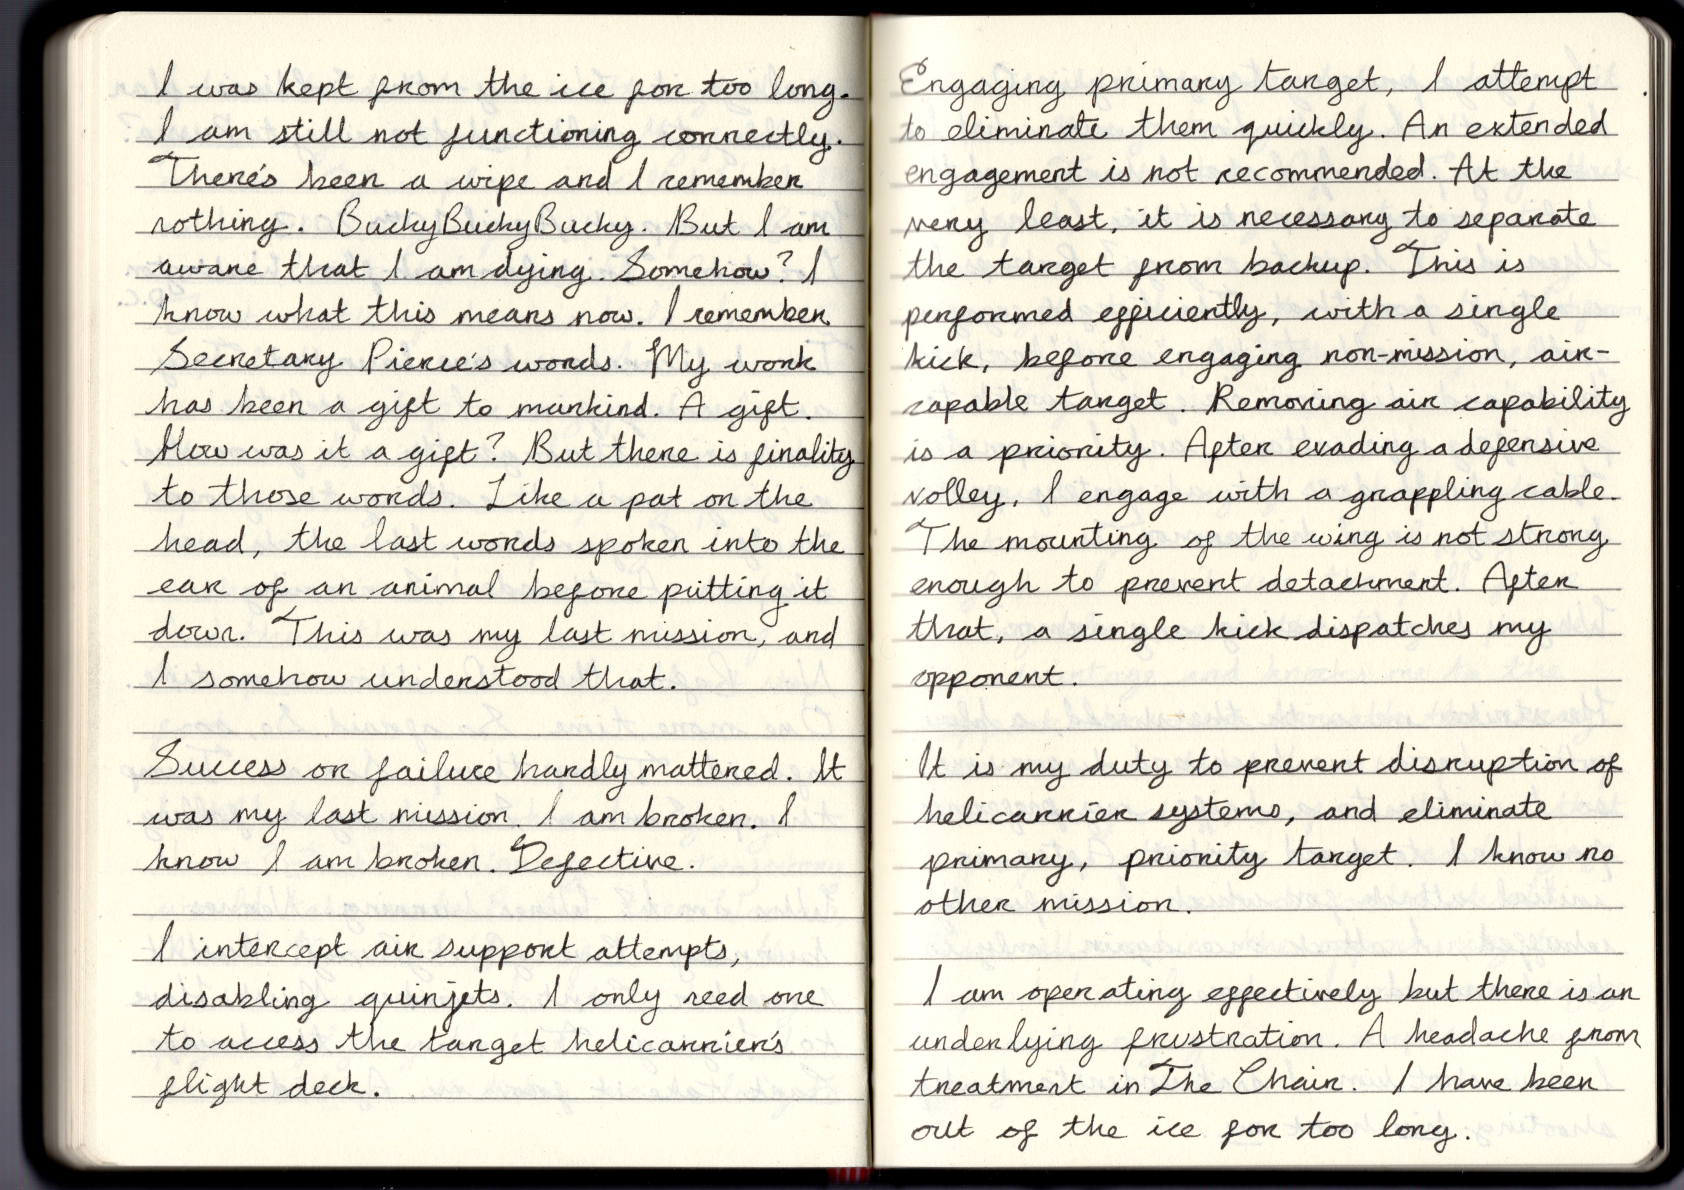 I was kept from the ice for too long.
I am still not functioning correctly.
There's been a wipe and I remember
nothing. BuckyBuckyBucky. But I am
aware that I am dying. Somehow? I
know what this means now. I remember
Secretary Pierce's words. My work
has been a gift to mankind. A gift.
How was it a gift? But there is finality
to those words. Like a pat on the
head, the last words spoken into the
ear of an animal before putting it
down. This was my last mission, and
I somehow understood that.
Success or failure hardly mattered. It
was my last mission. I am broken. I
know I am broken. Defective.
I intercept air support attempts,
disabling quinjets. I only need one
to access the target helicarrier's
flight deck.
Engaging primary target, I attempt
to eliminate them quickly. An extended
engagement is not recommended. At the
very least, it is necessary to separate
the target from backup. This is
performed efficiently, with a single
kick, before engaging non-mission, air-
capable target. Removing air capability
is a priority. After evading a defensive
volley, I engage with a grappling cable.
The mounting of the wing is not strong
enough to prevent detachment. After
that, a single kick dispatches my
opponent.
It is my duty to prevent disruption of
helicarrier systems, and eliminate
primary, priority target. I know no
other mission.
I am operating effectively but there is an
underlying frustration. A headache from
treatment in The Chair. I have been
out of the ice for too long.